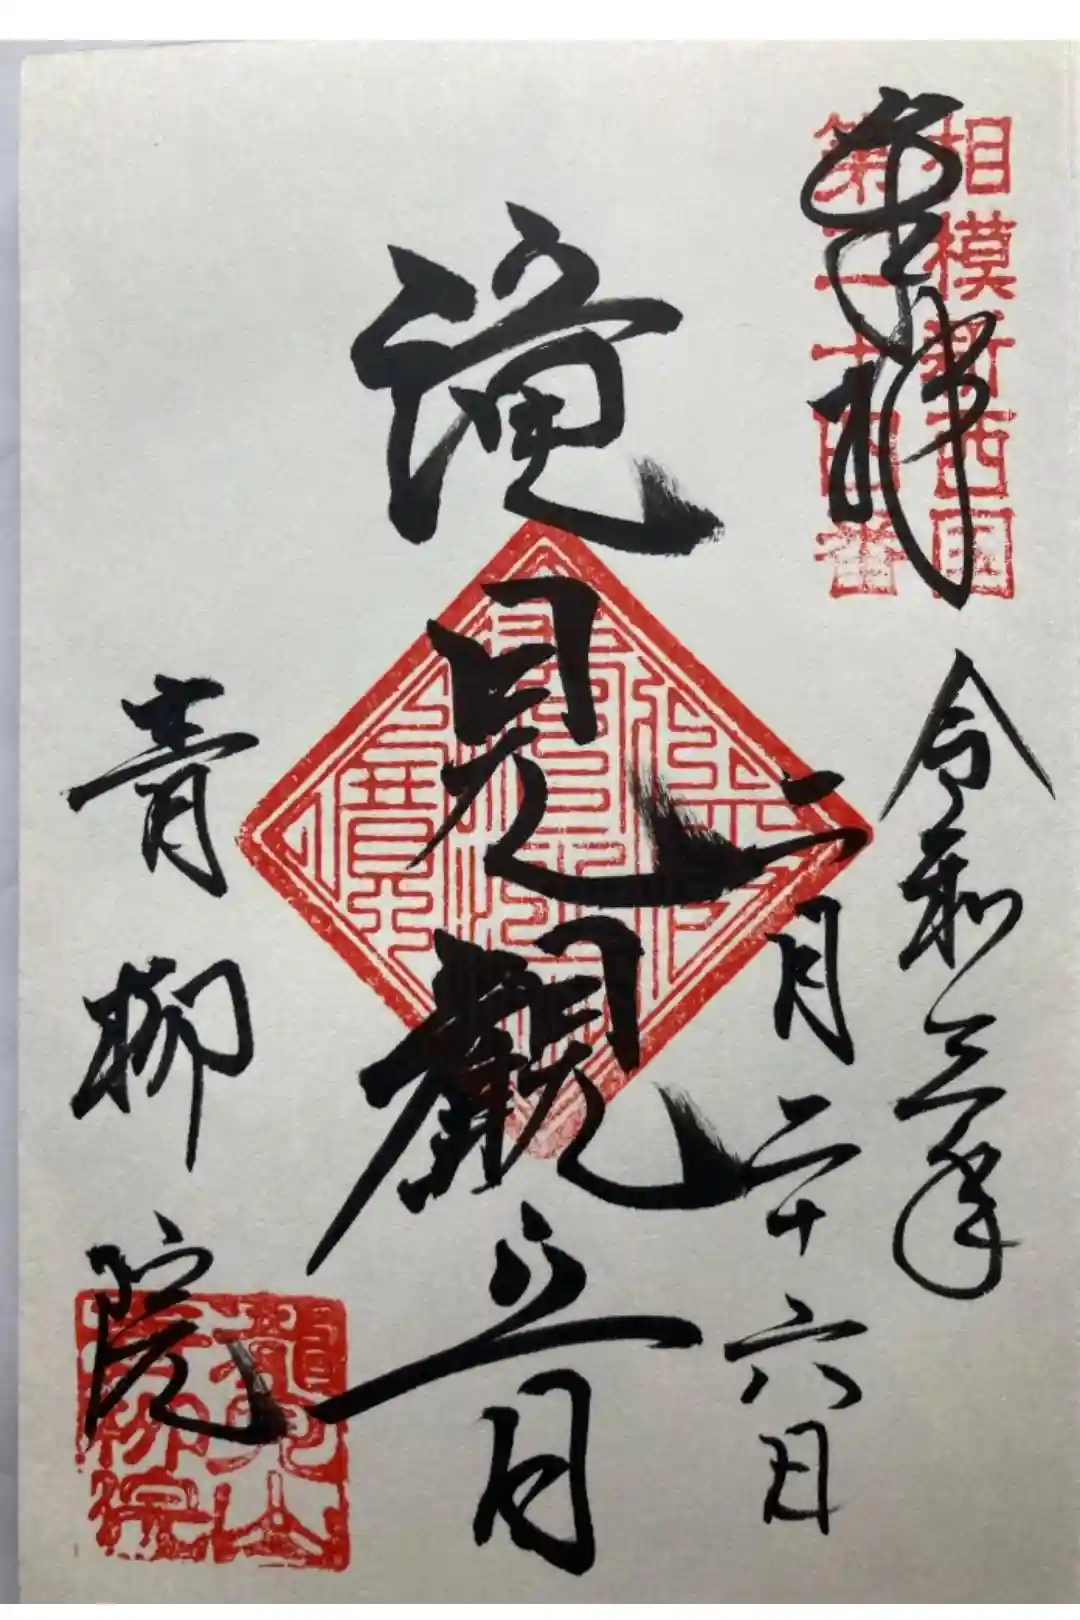 相模新西国
第二十四番
奉拝
令和三年
二月二十六日
滝見觀音
青柳院
青柳院